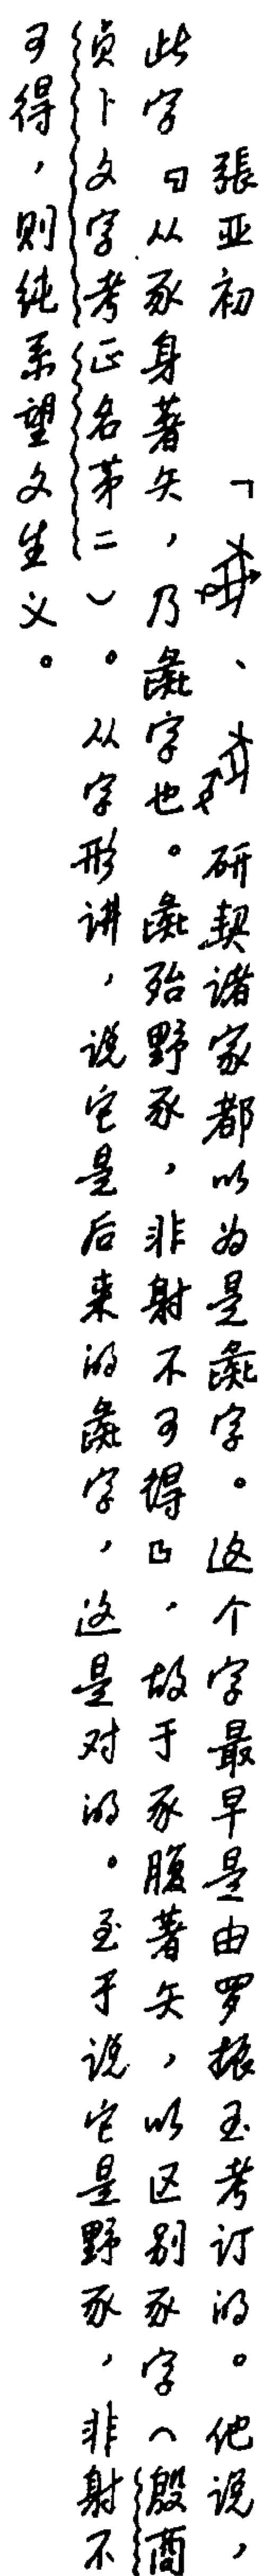 張亚初 「、 研契诸家都以为是彘字。这个字最早是由罗振玉考订的。他说，
此字『从豕身著矢，乃彘字也。彘殆野豕，非射不可得』，故于豕腹著矢，以区别豕字（殷商
贞卜文字考正名第二）。从字形讲，说它是后来的彘字，这是对的。至于说它是野豕，非射不
可得，则纯系望文生义。